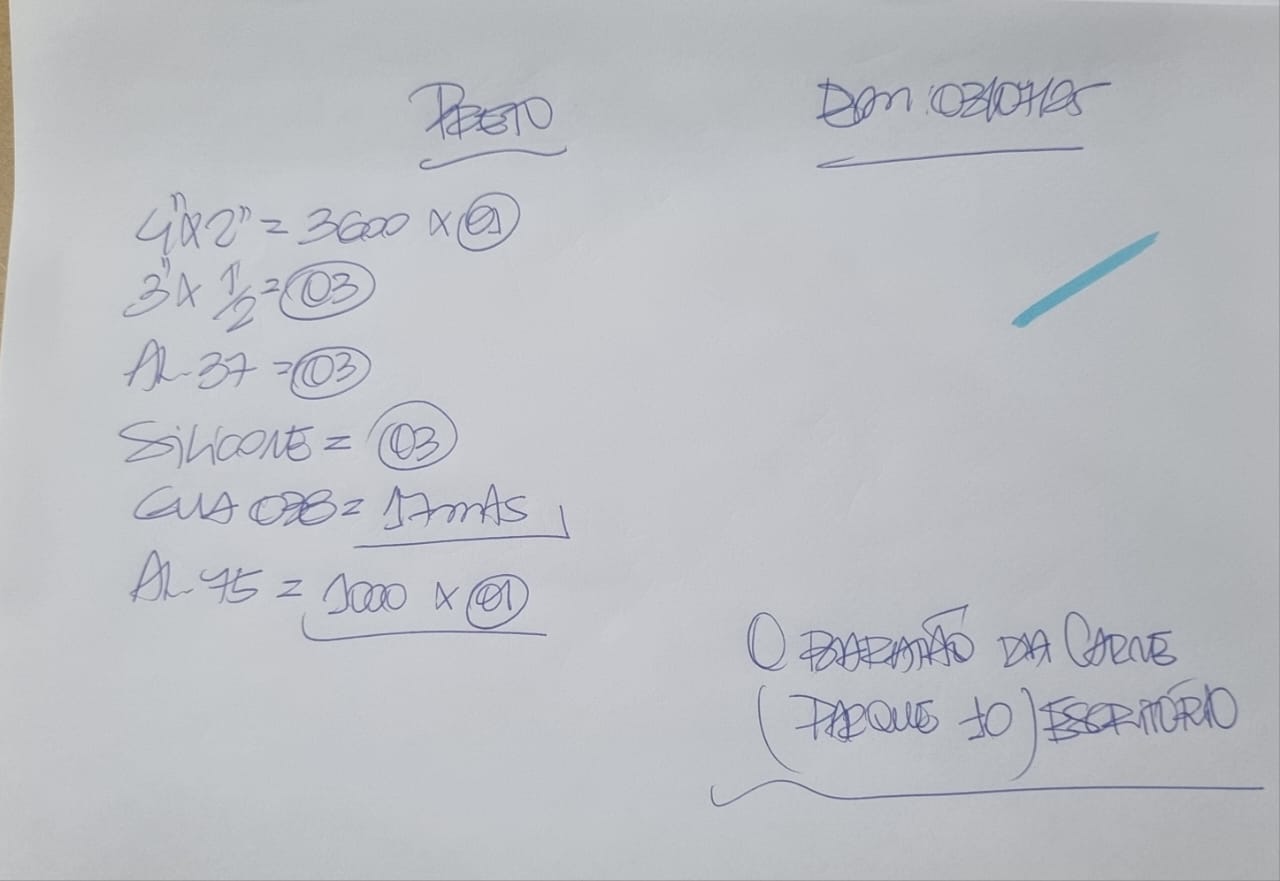 PRETO
Dom: 03/07/25
4"x2" = 3600 x 01
3" x 1/2 = 03
AL-37 = 03
SILICONE = 03
GUA 038 = 17mts
AL-75 = 1000 x 01
O BARATÃO DA CARNE
(PARQUE 10) ESCRITÓRIO